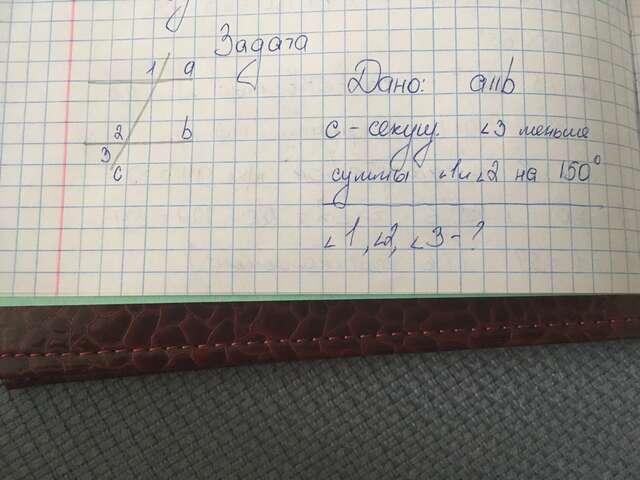 Задача
1 a
2 b
3
c
Дано: a॥b
c - секущ. ∠3 меньше
суммы ∠1 и ∠2 на 150°
∠1, ∠2, ∠3 - ?